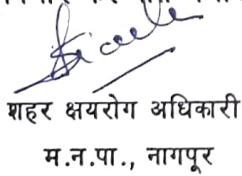 शहर क्षयरोग अधिकारी
म.न.पा., नागपूर